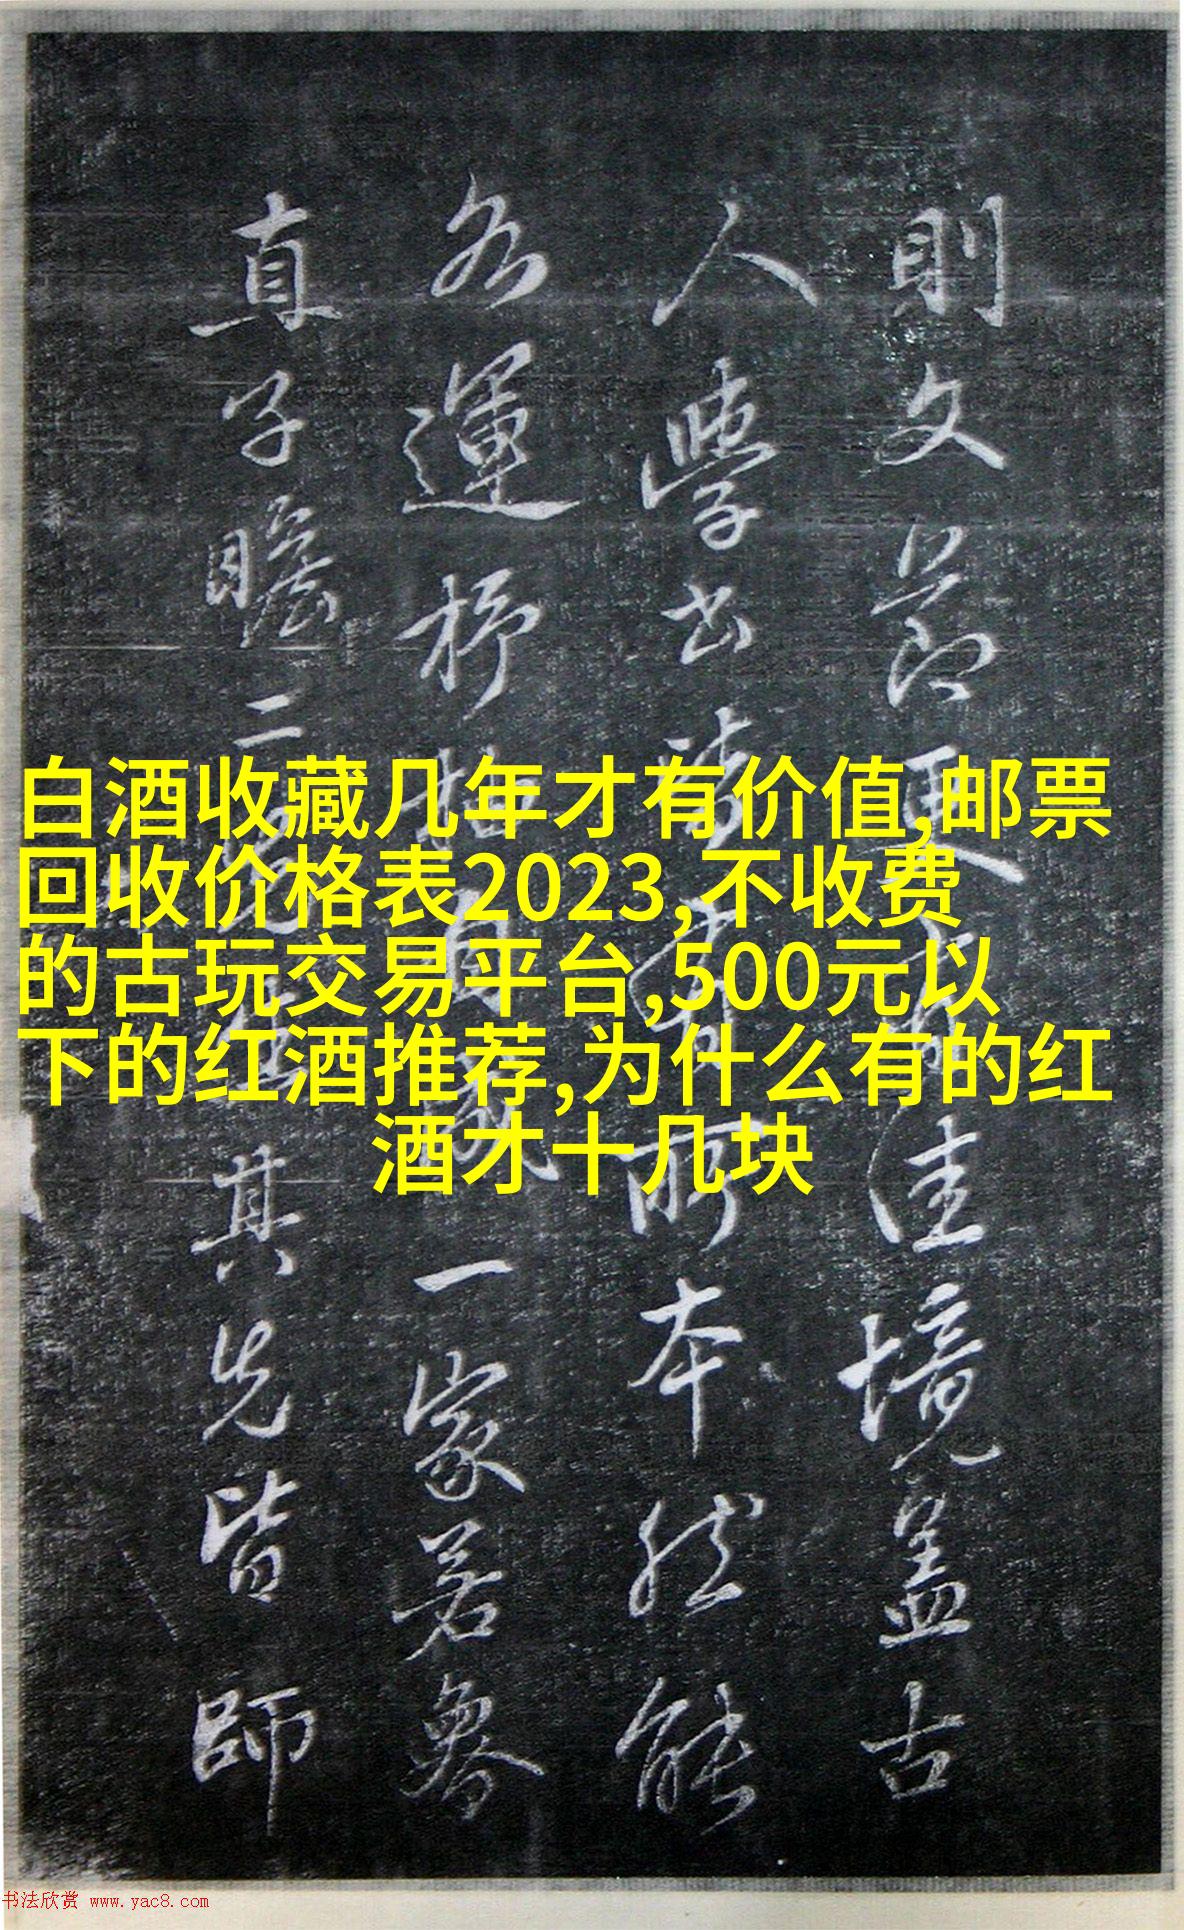 白酒收藏几年才有价值,邮票
回收价格表2023,不收费
的古玩交易平台,500元以
下的红酒推荐,为什么有的红
酒才十几块
則文節更佳境盖古
人學書所本然能
各運杼一家若魯
直子瞻二其先皆師
书法欣赏 www.yac8.com